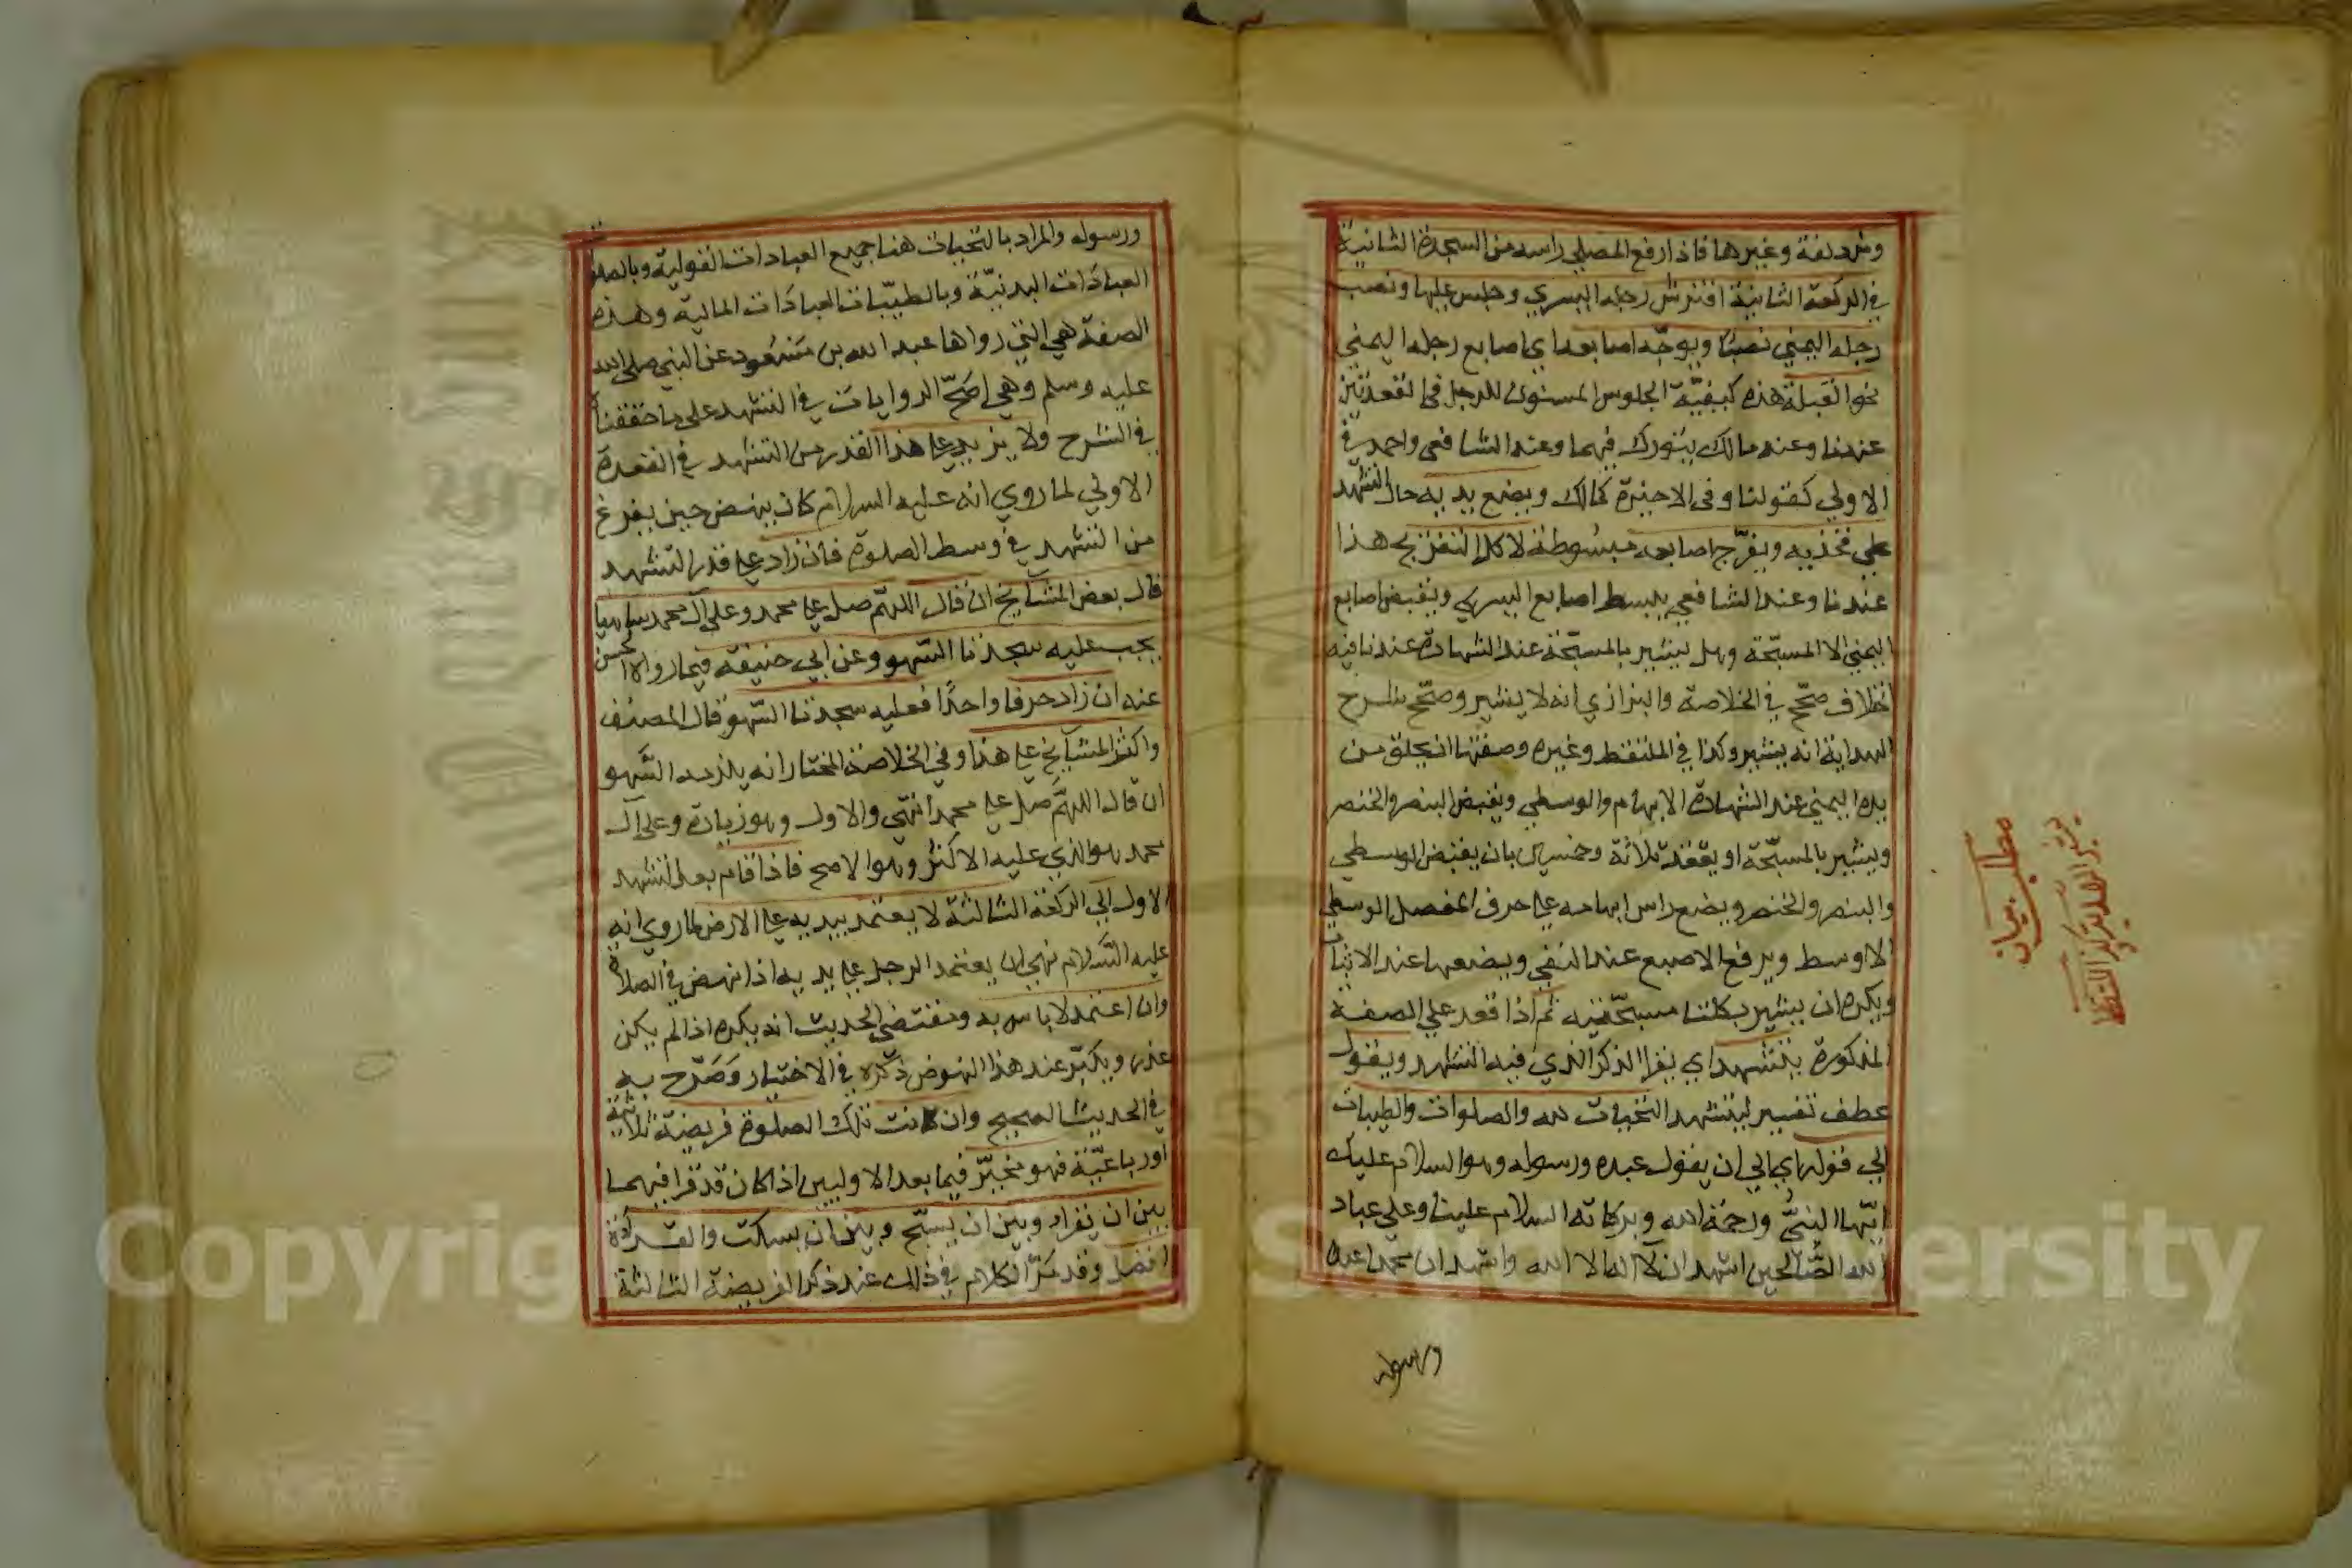 ومزدلفة وغيرها فاذا رفع المصلي راسه من السجدة الثانية
في الركعة الثانية افترش رجله اليسري وجلس عليها ونصب
رجله اليمني نصبًا ويوجّه اصابعه اي اصابع رجله اليمني
نحو القبلة هذه كيفيّة الجلوس المسنون للرجل في القعدتين
عندنا وعند مالك يتورك فيهما وعند الشافعي واحمد في
الاولي كقولنا وفي الاخيرة كمالك ويضع يديه حال التشهد
علي فخذيه ويفرّج اصابعه مبسُوطة لا كل التفريج هذا
عندنا وعند الشافعي يبسط اصابع اليسري ويقبض اصابع
اليمني الا المسبّحة وهل يشير بالمسبّحة عند الشهادة عندنا فيه
اختلاف صحّح في الخلاصة والبزازي انه لا يشير وصحّح شرح
الهداية انه يشير وكذا في الملتقط وغيره وصفتها ان يحلق من
يده اليمني عند الشهادة الابهام والوسطي ويقبض البنصر والخنصر
ويشير بالمسبّحة او يعقد ثلاثة وخمسين بان يقبض الوسطي
والبنصر والخنصر ويضع راس ابهامه علي حرف المفصل الوسطي
الاوسط ويرفع الاصبع عند النفي ويضعها عند الاثبات
ويكره ان يشير بكلتا مسبحّتيه ثم اذا قعد علي الصفة
المذكورة يتشهد اي يقرا الذكر الذي فيه التشهد ويقول
عطف تفسير ليتشهد التحيات لله والصلوات والطيبات
الي قوله اي الي ان يقول عبده ورسوله وهو السلام عليك
ايّها النبيُّ ورحمة الله وبركاته السلام علينا وعلي عباد
الله الصَّالحين اشهد ان لا اله الا الله واشهد ان محمدا عبده
ورسوله
مطلب بيان
ورسوله والمراد بالتحيات هنا جميع العبادات القولية وبالصلوات
العبادَات البدنيّة وبالطيّبات العبادَات المالية وهذه
الصفة هي التي رواها عبد الله بن مَسْعُود عن النبي صلي الله
عليه وسلم وهي اصَحّ الروايات في التشهد علي ما حققناه
في الشرح ولا يزيد علي هذا القدر من التشهد في القعدة
الاولي لما روي انه عليه السلام كان ينهض حين يفرغ
من التشهد في وسط الصلوة فان زاد علي قدر التشهد
قال بعض المشايخ ان قال اللهّم صل علي محمد وعلي آل محمد ساهيا
يجب عليه سجدتا السّهو وعن ابي حنيفة فيما رواه الحسن
عنه ان زاد حرفا واحدًا فعليه سجدتا السّهو قال المصنف
واكثر المشايخ علي هذا وفي الخلاصة المختار انه يلزمه السّهو
ان قال اللهمَّ صلّ علي محمد انتهي والاول وهو زيادة وعلي آل
محمد هو الذي عليه الاكثر وهو الاصح فاذا قام بعد التشهد
الاول الي الركعة الثالثة لا يعتمد بيديه علي الارض لما روي انه
عليه السّلام نهي ان يعتمد الرجل علي يديه اذا نهض في الصلاة
وان اعتمد لا باس به ومقتضي الحديث انه يكره اذا لم يكن
عذر ويكبّر عند هذا النهوض ذكره في الاختيار وَصَرّح به
في الحديث الصحيح وان كانت تلك الصلوة فريضة ثلاثية
اورباعيّة فهو مخيّر فيما بعد الاوليين اذا كان قد قرا فيهما
بين ان يقراء وبين ان يسبّح وبين ان يسكت والقرآة
افضل وقد مَرَّ الكلام في ذلك عند ذكر الفريضة الثالثة